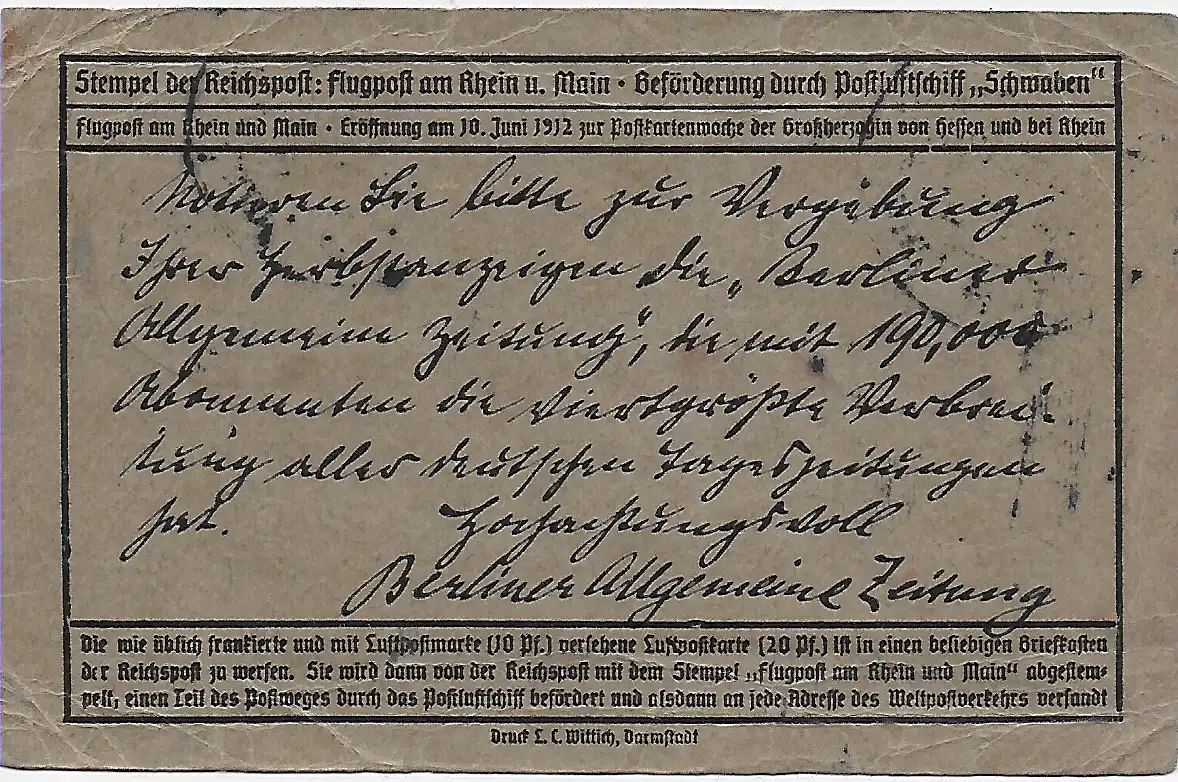 Stempel der Reichspost: Flugpost am Rhein u. Main · Beförderung durch Postluftschiff „Schwaben“
Flugpost am Rhein und Main · Eröffnung am 10. Juni 1912 zur Postkartenwoche der Großherzogin von Hessen und bei Rhein
Notieren Sie bitte zur Vergebung
Ihrer Herbstanzeigen die „Berliner
Allgemeine Zeitung“, die mit 190,000
Abonnenten die viertgrößte Verbrei-
tung aller deutschen Tageszeitungen
hat. Hochachtungsvoll
Berliner Allgemeine Zeitung
Die wie üblich frankierte und mit Luftpostmarke (10 Pf.) versehene Luftpostkarte (20 Pf.) ist in einen beliebigen Briefkasten
der Reichspost zu werfen. Sie wird dann von der Reichspost mit dem Stempel „Flugpost am Rhein und Main“ abgestem-
pelt, einen Teil des Postweges durch das Postluftschiff befördert und alsdann an jede Adresse des Weltpostverkehrs versandt
Druck L. C. Wittich, Darmstadt